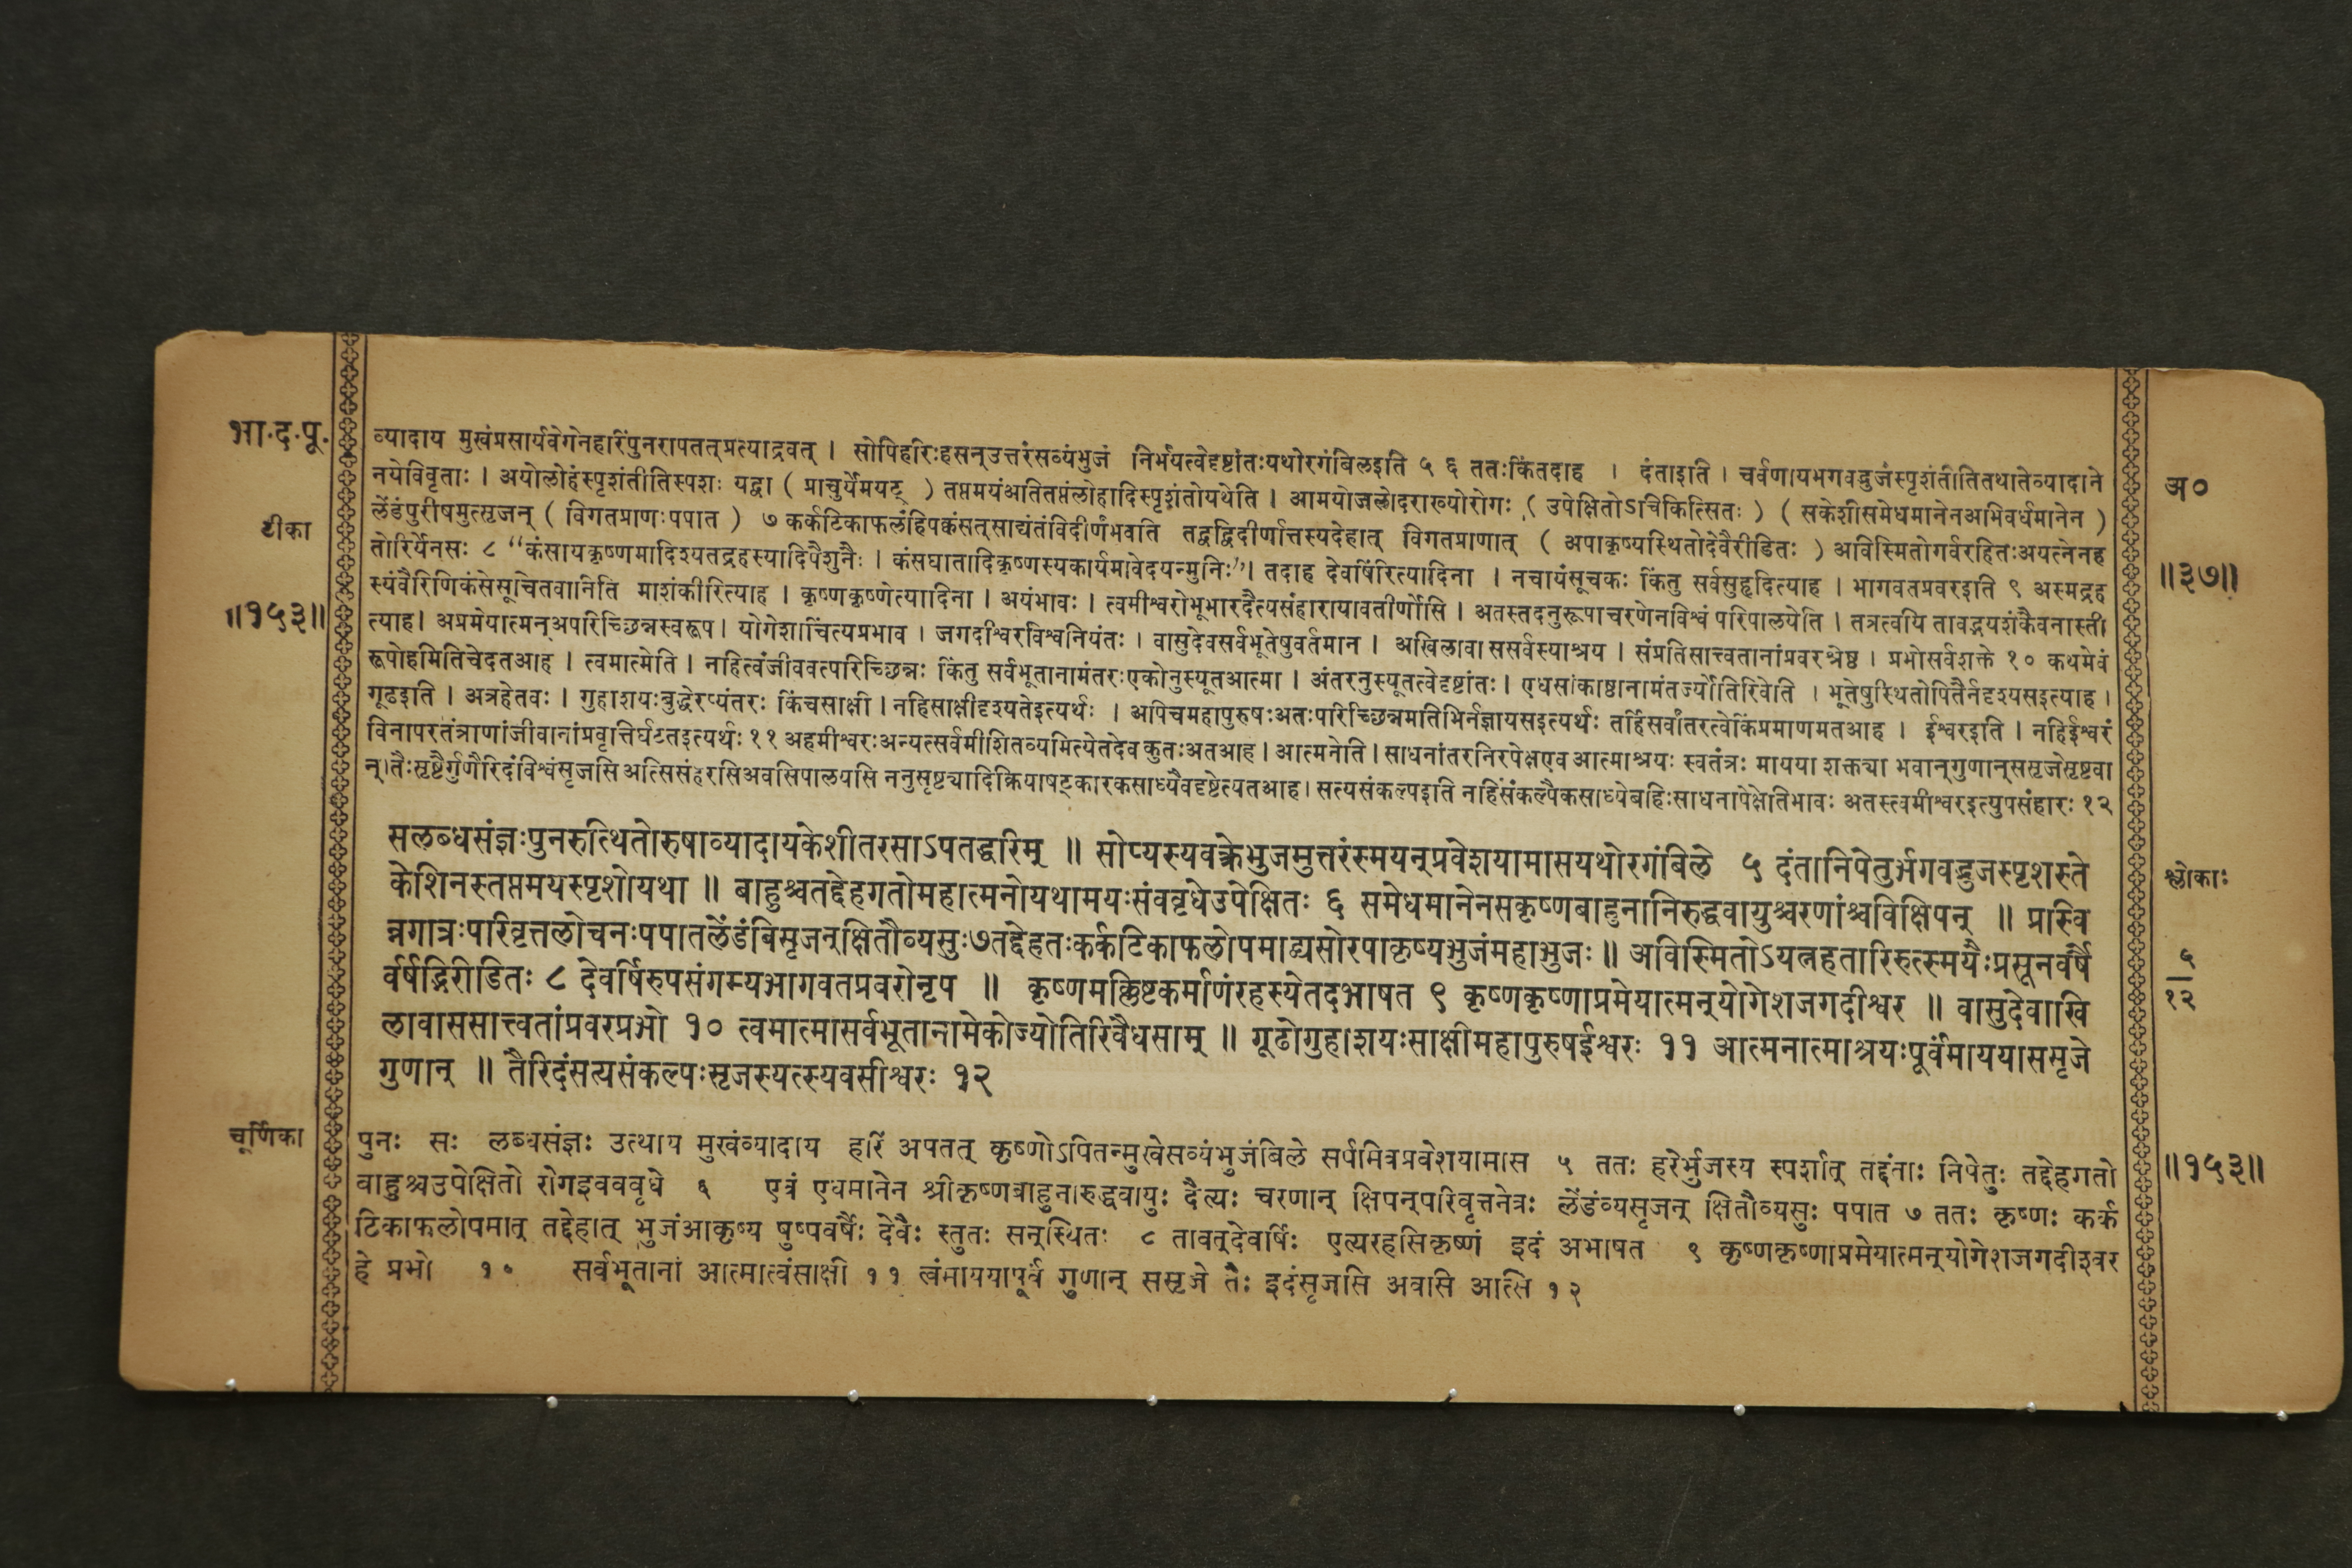 भा.द.पू.
टीका
॥१५३॥
व्यादाय मुखंप्रसार्यवेगेनहरिंपुनरापतत्प्रत्याद्रवत् । सोपिहरिःहसन्उत्तरंसव्यंभुजं निर्भयत्वेदृष्टांतःयथोरगंबिलइति ५ ६ ततःकिंतदाह । दंताइति । चर्वणायभगवद्भुजंस्पृशंतीतितथातेव्यादाने
नयेविवृताः । अयोलोहंस्पृशंतीतिस्पशः यद्वा ( प्राचुर्येमयट् ) तप्तमयंअतितप्तंलोहादिस्पृशंतोयथेति । आमयोजलोदराख्योरोगः ( उपेक्षितोऽचिकित्सितः ) ( सकेशीसमेधमानेनअभिवर्धमानेन )
लेंडंपुरीषमुत्सृजन् ( विगतप्राणःपपात ) ७ कर्कटिकाफलंहिपक्वंसत्साद्यंतंविदीर्णंभवति तद्वद्विदीर्णात्तस्यदेहात् विगतप्राणात् ( अपाकृष्यस्थितोदेवैरीडितः ) अविस्मितोगर्वरहितःअयत्नेनह
तोरिर्येनसः ८ “कंसायकृष्णमादिश्यतद्रहस्यादिपैशुनैः । कंसघातादिकृष्णस्यकार्यमावेदयन्मुनिः”। तदाह देवर्षिरित्यादिना । नचायंसूचकः किंतु सर्वसुहृदित्याह । भागवतप्रवरइति ९ अस्मद्रह
स्यंवैरिणिकंसेसूचितवानिति माशंकीरित्याह । कृष्णकृष्णेत्यादिना । अयंभावः । त्वमीश्वरोभूभारदैत्यसंहारायावतीर्णोसि । अतस्तदनुरूपाचरणेनविश्वं परिपालयेति । तत्रत्वयि तावद्भयशंकैवनास्ती
त्याह। अप्रमेयात्मन्अपरिच्छिन्नस्वरूप। योगेशाचिंत्यप्रभाव । जगदीश्वरविश्वनियंतः । वासुदेवसर्वभूतेषुवर्तमान । अखिलावा ससर्वस्याश्रय । संप्रतिसात्त्वतानांप्रवरश्रेष्ठ । प्रभोसर्वशक्ते १० कथमेवं
रूपोहमितिचेदतआह । त्वमात्मेति । नहित्वंजीववत्परिच्छिन्नः किंतु सर्वभूतानामंतरःएकोनुस्यूतआत्मा । अंतरनुस्यूतत्वेदृष्टांतः। एधसांकाष्ठानामंतर्ज्योतिरिवेति । भूतेषुस्थितोपितैर्नदृश्यसइत्याह ।
गूढइति । अत्रहेतवः । गुहाशयःबुद्धेरप्यंतरः किंचसाक्षी । नहिसाक्षीदृश्यतेइत्यर्थः । अपिचमहापुरुषःअतःपरिच्छिन्नमतिभिर्नज्ञायसइत्यर्थः तर्हिसर्वांतरत्वेकिंप्रमाणमतआह । ईश्वरइति । नहिईश्वरं
विनापरतंत्राणांजीवानांप्रवृत्तिर्घटतइत्यर्थः ११ अहमीश्वरःअन्यत्सर्वमीशितव्यमित्येतदेव कुतःअतआह। आत्मनेति। साधनांतरनिरपेक्षएव आत्माश्रयः स्वतंत्रः मायया शक्त्या भवान्गुणान्ससृजेसृष्टवा
न्।तैःसृष्टैर्गुणैरिदंविश्वंसृजसि अत्सिसंहरसिअवसिपालयसि ननुसृष्ट्यादिक्रियाषट्कारकसाध्यैवदृष्टेत्यतआह। सत्यसंकल्पइति नहिसंकल्पैकसाध्येबहिःसाधनापेक्षेतिभावः अतस्त्वमीश्वरइत्युपसंहारः १२
अ०
॥३७॥
सलब्धसंज्ञःपुनरुत्थितोरुषाव्यादायकेशीतरसाऽपतद्धरिम् ॥ सोप्यस्यवक्त्रेभुजमुत्तरंस्मयन्प्रवेशयामासयथोरगंबिले ५ दंतानिपेतुर्भगवद्भुजस्पृशस्ते
केशिनस्तप्तमयस्पृशोयथा ॥ बाहुश्चतद्देहगतोमहात्मनोयथामयःसंववृधेउपेक्षितः ६ समेधमानेनसकृष्णबाहुनानिरुद्धवायुश्चरणांश्चविक्षिपन् ॥ प्रास्वि
न्नगात्रःपरिवृत्तलोचनःपपातलेंडंविसृजन्क्षितौव्यसुः७तद्देहतःकर्कटिकाफलोपमाद्व्यसोरपाकृष्यभुजंमहाभुजः॥ अविस्मितोऽयत्नहतारिरुत्स्मयैःप्रसूनवर्षै
र्वर्षद्भिरीडितः ८ देवर्षिरुपसंगम्यभागवतप्रवरोनृप ॥ कृष्णमक्लिष्टकर्माणंरहस्येतदभाषत ९ कृष्णकृष्णाप्रमेयात्मन्योगेशजगदीश्वर ॥ वासुदेवाखि
लावाससात्त्वतांप्रवरप्रभो १० त्वमात्मासर्वभूतानामेकोज्योतिरिवैधसाम् ॥ गूढोगुहाशयःसाक्षीमहापुरुषईश्वरः ११ आत्मनात्माश्रयःपूर्वंमाययाससृजे
गुणान् ॥ तैरिदंसत्यसंकल्पःसृजस्यत्स्यवसीश्वरः १२
श्लोकाः
५
१२
चूर्णिका
पुनः सः लब्धसंज्ञः उत्थाय मुखंव्यादाय हरिं अपतत् कृष्णोऽपितन्मुखेसव्यंभुजंबिले सर्पमिवप्रवेशयामास ५ ततः हरेर्भुजस्य स्पर्शात् तद्दंताः निपेतुः तद्देहगतो
बाहुश्चउपेक्षितो रोगइवववृधे ६ एवं एधमानेन श्रीकृष्णबाहुनारुद्धवायुः दैत्यः चरणान् क्षिपन्परिवृत्तनेत्रः लेंडंव्यसृजन् क्षितौव्यसुः पपात ७ ततः कृष्णः कर्क
टिकाफलोपमात् तद्देहात् भुजंआकृष्य पुष्पवर्षैः देवैः स्तुतः सन्स्थितः ८ तावत्देवर्षिः एत्यरहसिकृष्णं इदं अभाषत ९ कृष्णकृष्णाप्रमेयात्मन्योगेशजगदीश्वर
हे प्रभो १० सर्वभूतानां आत्मात्वंसाक्षी ११ त्वंमाययापूर्वं गुणान् ससृजे तैः इदंसृजसि अवसि आत्सि १२
॥१५३॥